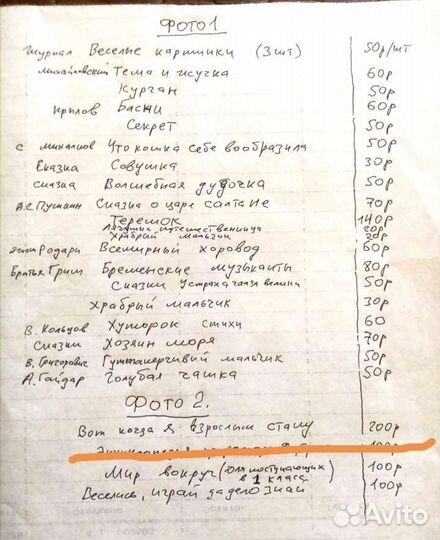 ФОТО 1
Журнал Веселые картинки (3шт) 50р/шт
Михайловский Тема и жучка 60р
Курган 50р
Крылов Басни 60р
Секрет 50р
С Михалков Что кошка себе вообразила 50р
Сказка Совушка 30р
сказка Волшебная дудочка 50р
А.С. Пушкин Сказка о царе салтане 70р
Терешок 140р
Лягушка путешественница 20р
Храбрый мальчик 20р
Родари Всемирный хоровод 60р
Братья Грим Бременские музыканты 80р
Сказки 50р
Храбрый мальчик 30р
В. Кольцов Хуторок стихи 60
Сказки Хозяин моря 70р
В. Григорович Гуттаперчивый мальчик 50р
А. Гайдар Голубая чашка 50р
ФОТО 2.
Вот когда я взрослым стану 200р
Мир вокруг (для поступающих 100р
в 1 класс)
Веселись, играй да дело знай 100р
Avito